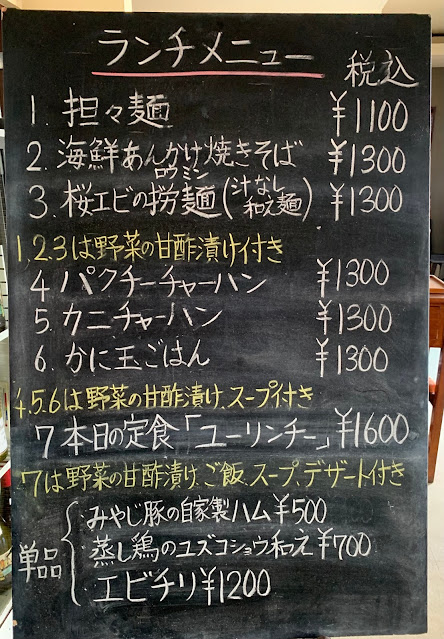 ランチメニュー
税込
1. 担々麺 ¥1100
2. 海鮮あんかけ焼きそば ¥1300
ロウミン
3. 桜エビの捞麺(汁なし和え麺) ¥1300
1,2,3は野菜の甘酢漬け付き
4 パクチーチャーハン ¥1300
5. カニチャーハン ¥1300
6. かに玉ごはん ¥1300
4.5.6は野菜の甘酢漬け、スープ付き
7 本日の定食「ユーリンチー」¥1600
7は野菜の甘酢漬け、ご飯、スープ、デザート付き
単品
みやじ豚の自家製ハム¥500
蒸し鶏のユズコショウ和え¥700
エビチリ¥1200